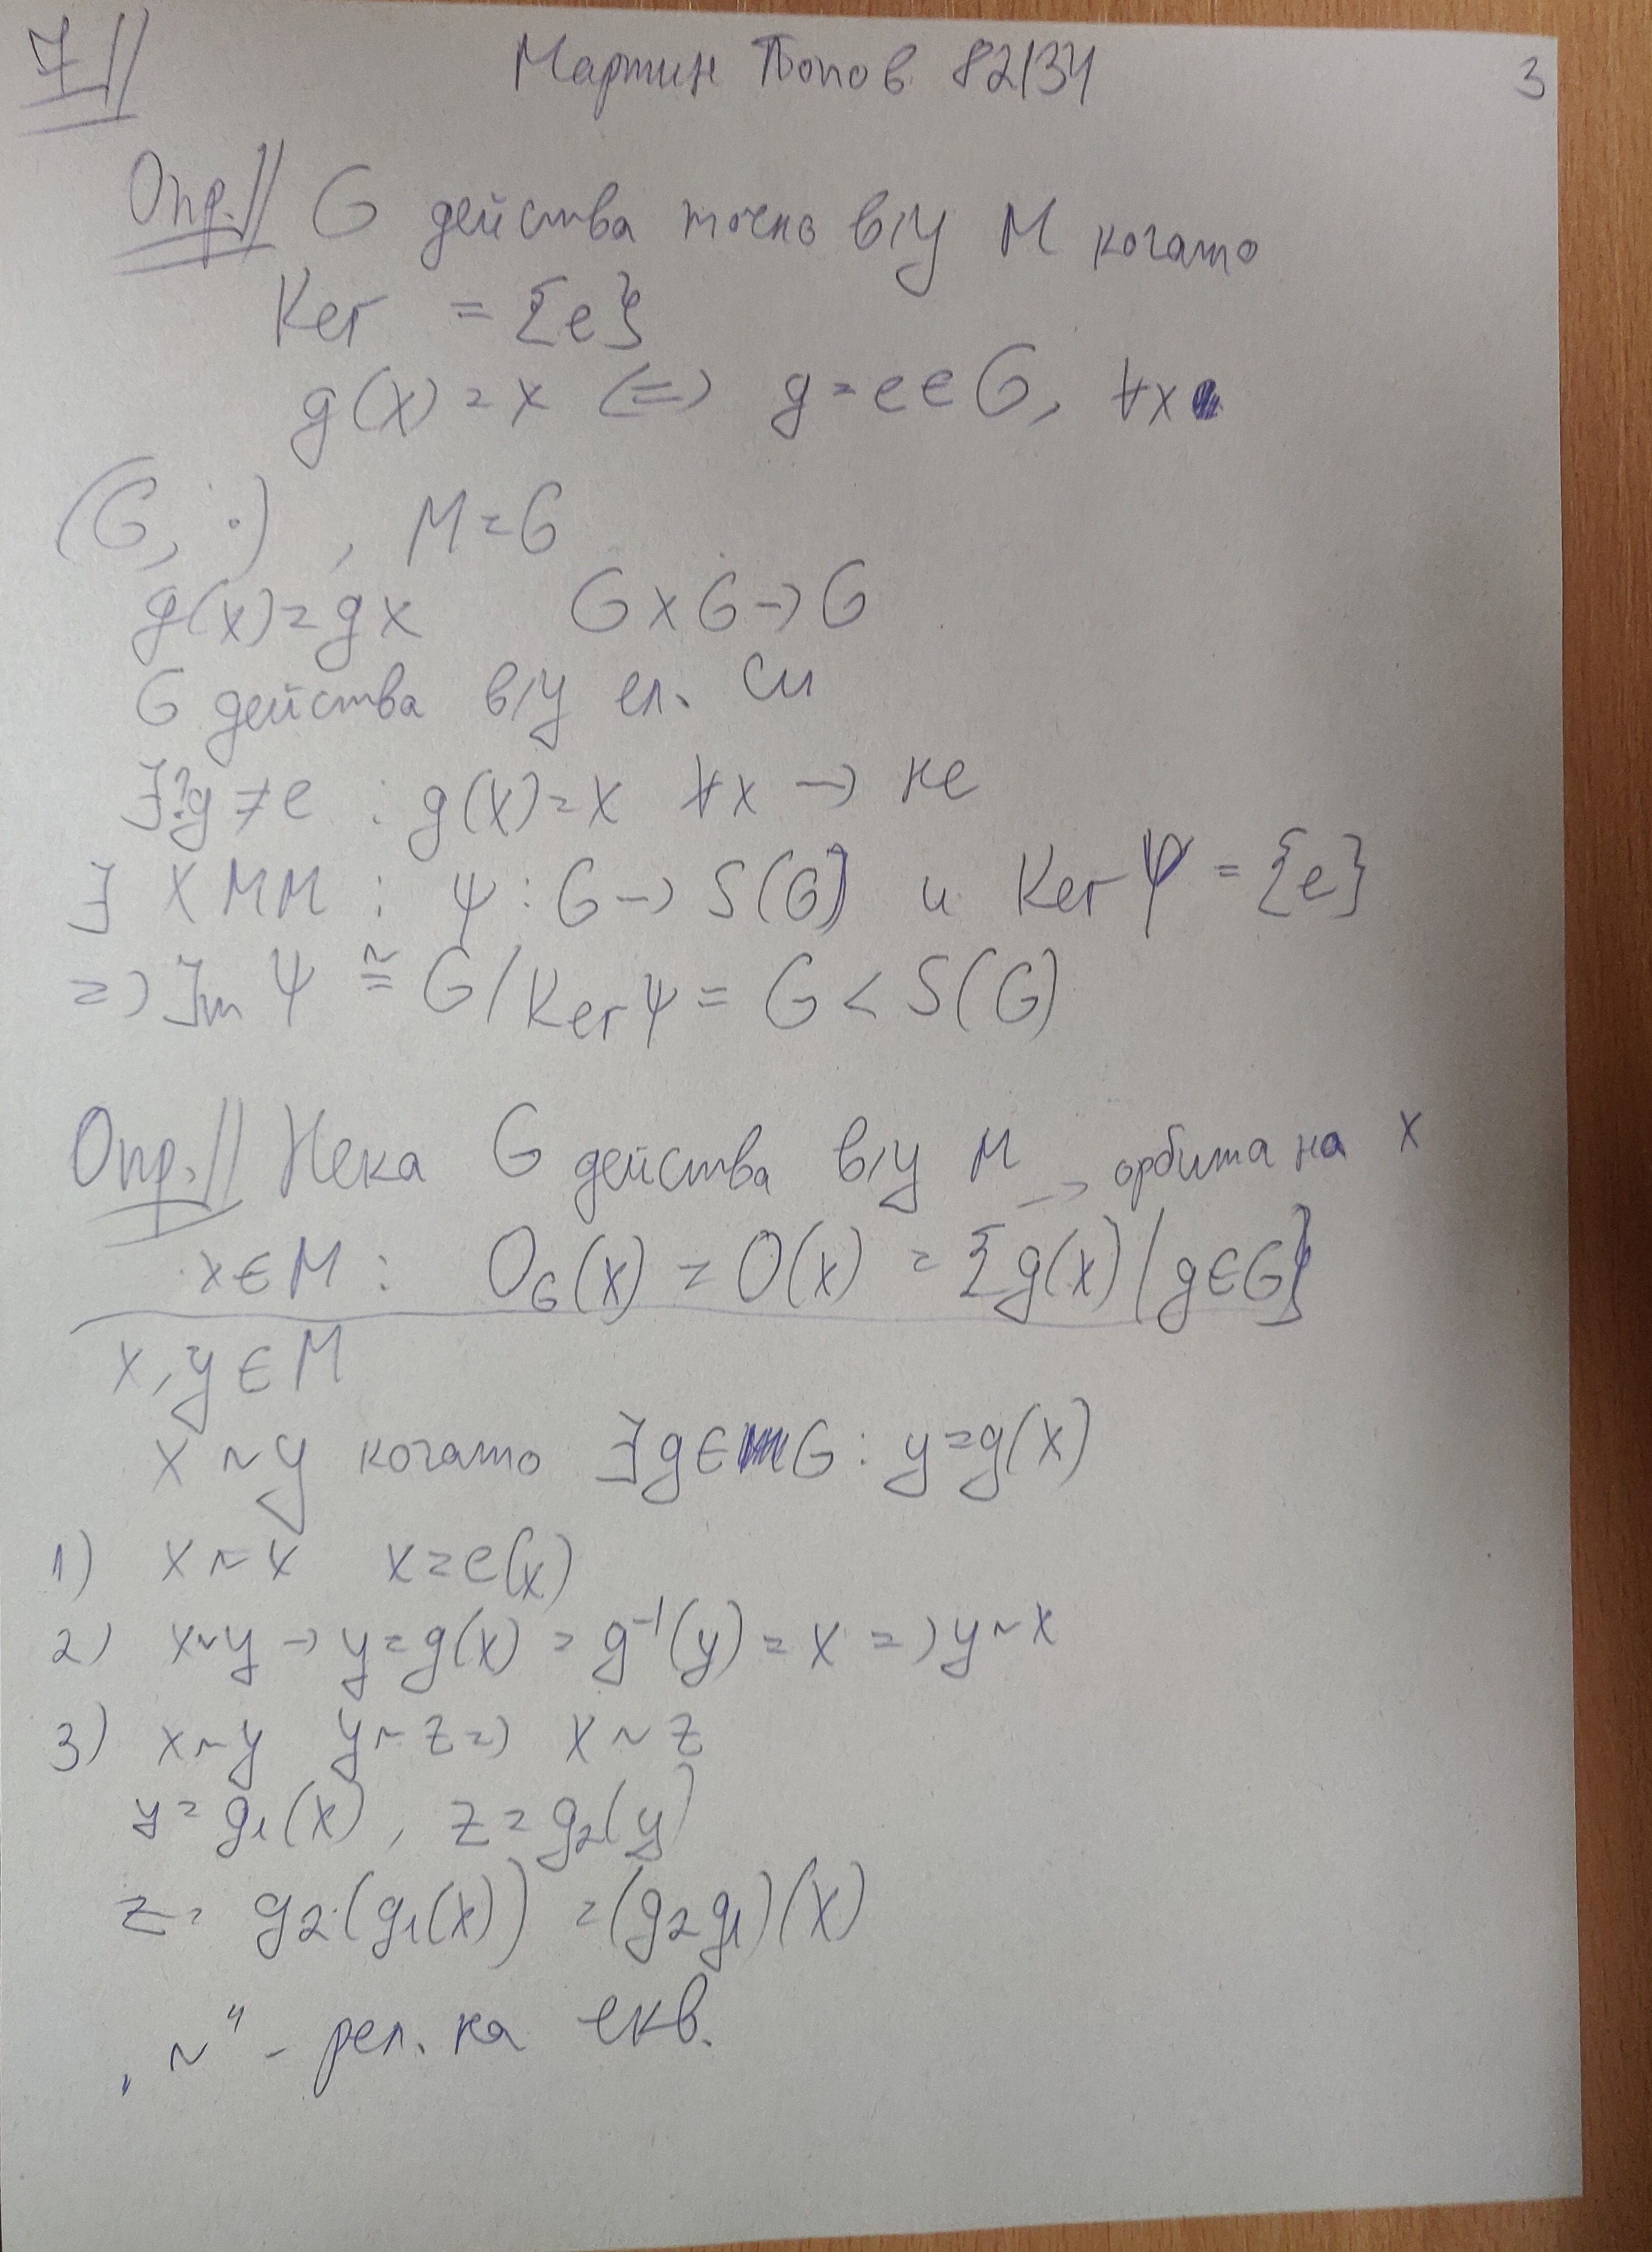 7//
Мартин Попов 82134 3
Опр.// G действа точно в/у M когато
Ker = {e}
g(x) = x <=> g = e ∈ G, ∀x
(G, ·) , M = G
g(x) = gx G x G -> G
G действа в/у ел. си
∃? g ≠ e : g(x) = x ∀x -> не
∃ ХММ : ψ : G -> S(G) и Ker ψ = {e}
=> Im ψ ≅ G/Ker ψ = G < S(G)
Опр.// Нека G действа в/у M -> орбита на x
x ∈ M : O_G(x) = O(x) = {g(x) / g ∈ G}
x, y ∈ M
x ~ y когато ∃ g ∈ G : y = g(x)
1) x ~ x x = e(x)
2) x ~ y -> y = g(x) = g⁻¹(y) = x => y ~ x
3) x ~ y y ~ z => x ~ z
y = g₁(x) , z = g₂(y)
z = g₂(g₁(x)) = (g₂g₁)(x)
„~" - рел. на екв.